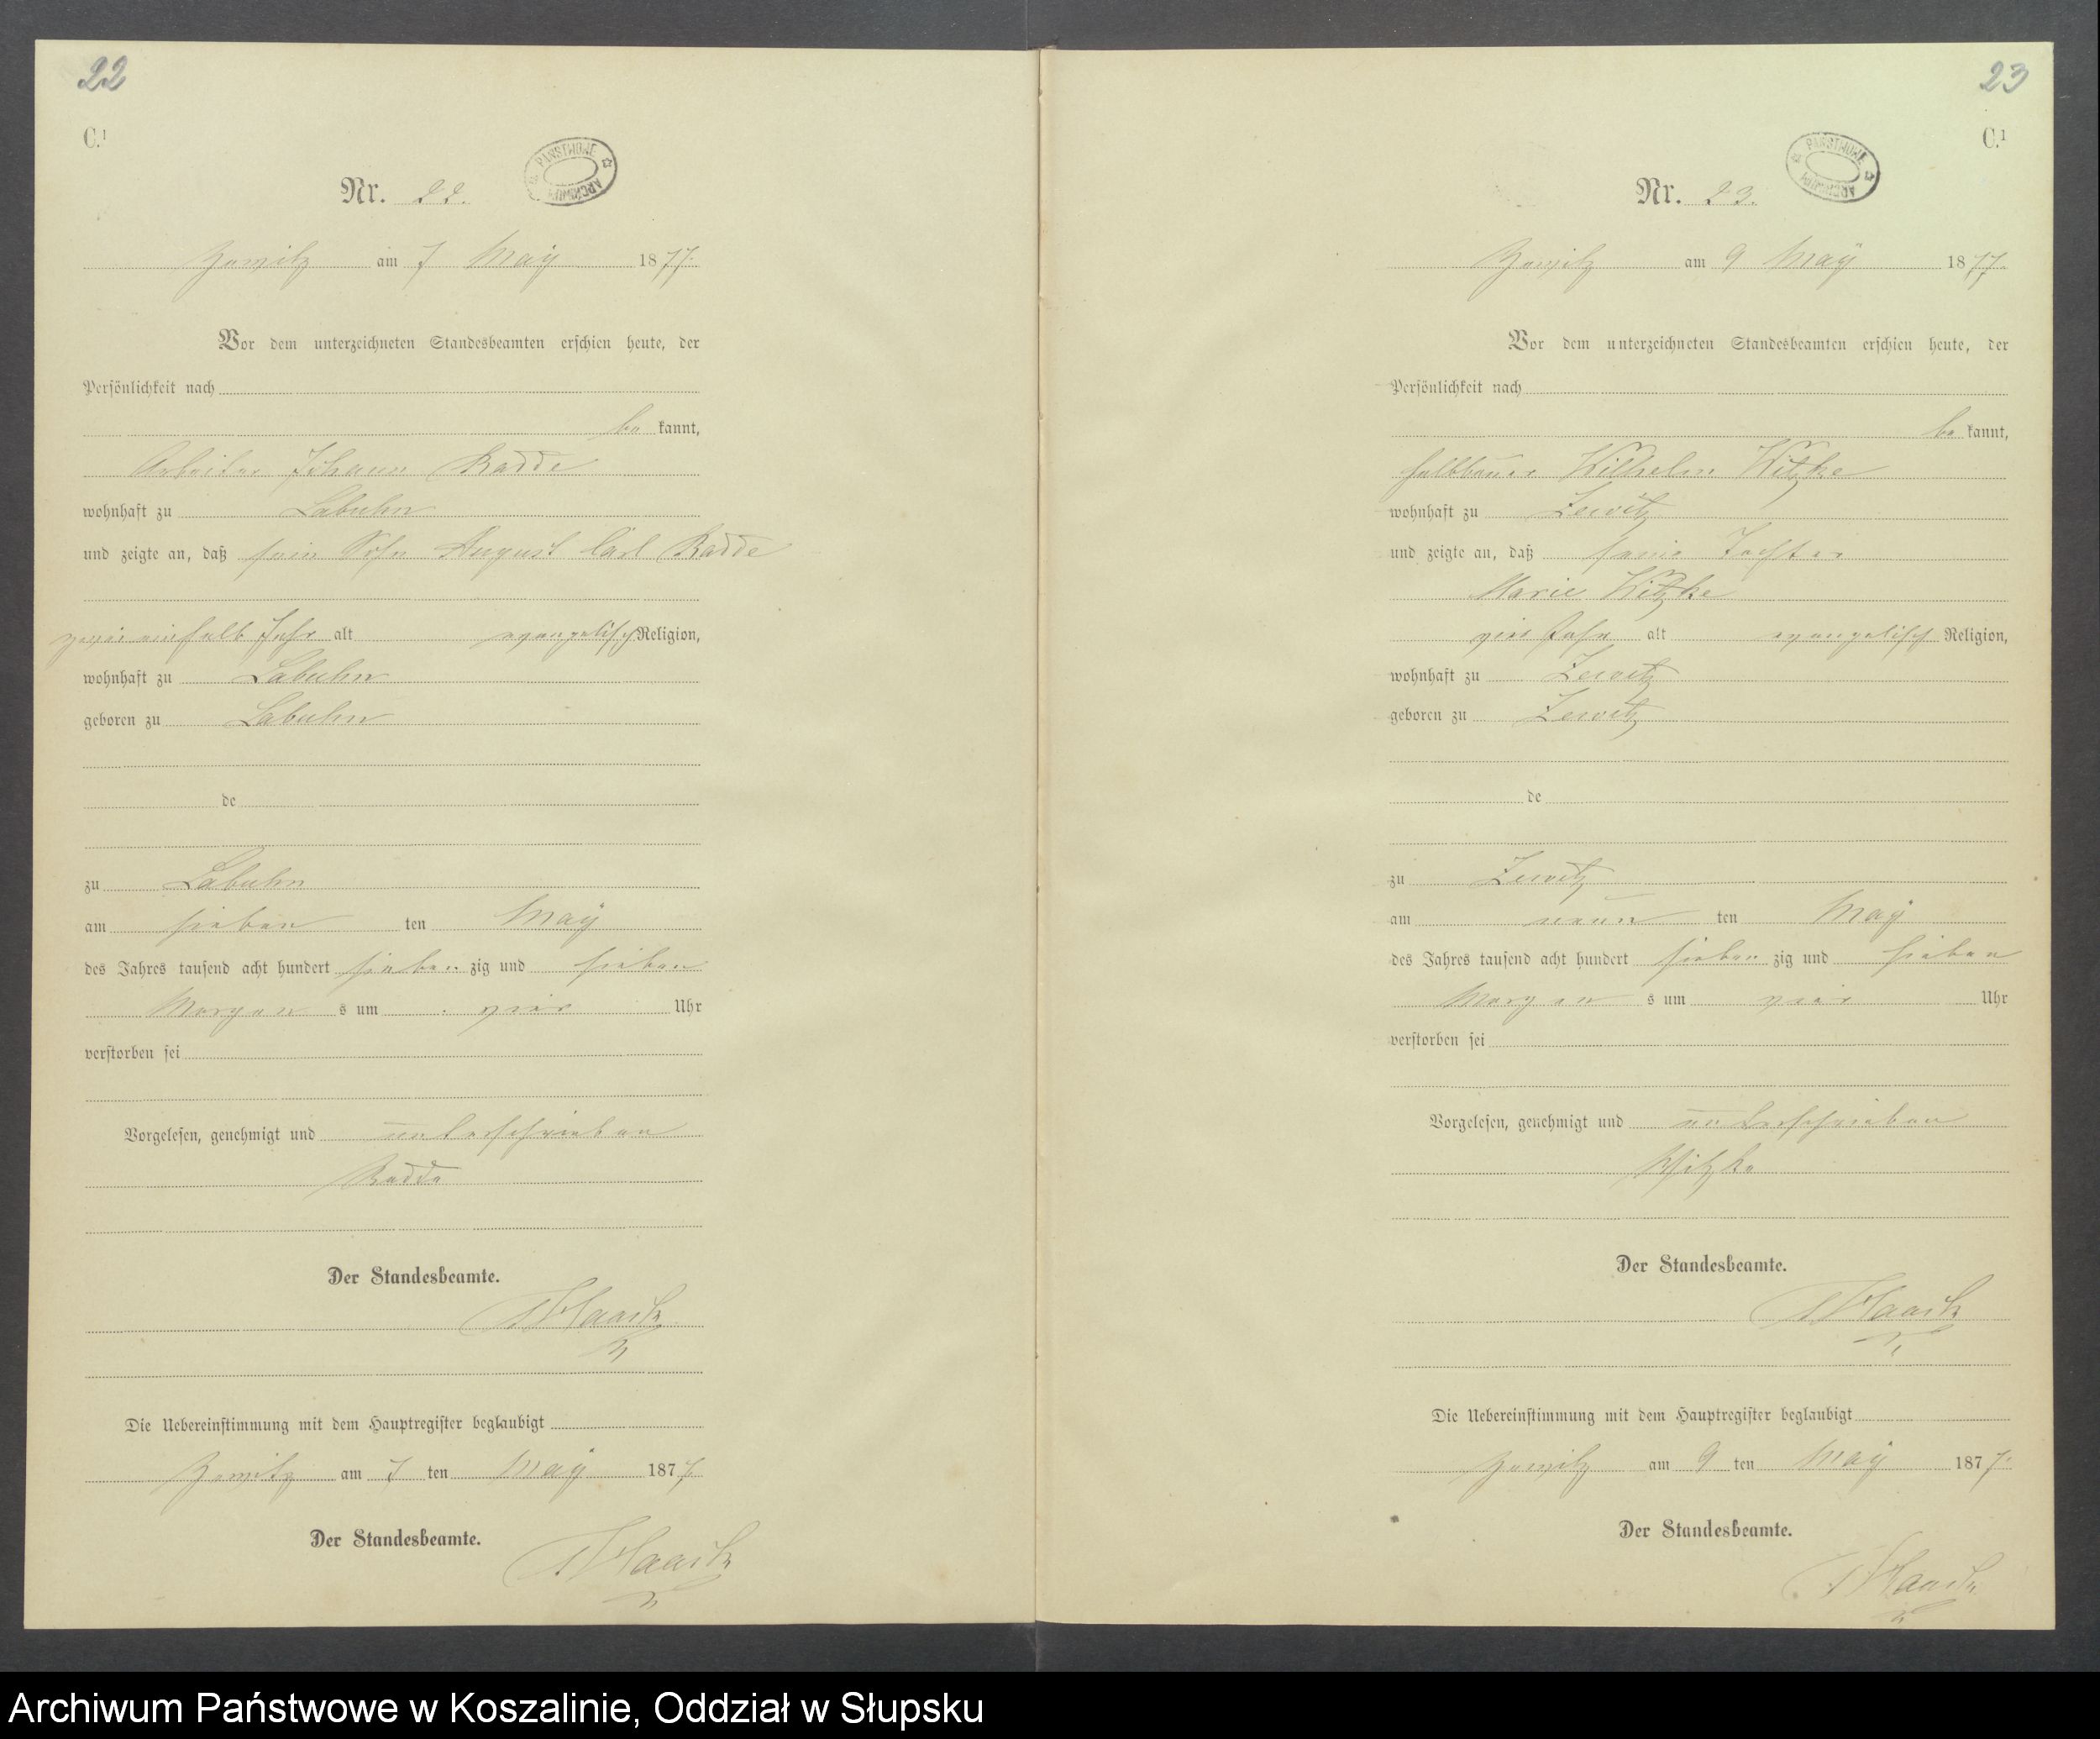 22
C.¹
PAŃSTWOWE ARCHIWUM
Nr. 22.
Zewitz am 7 Maÿ 1877.
Vor dem unterzeichneten Standesbeamten erschien heute, der
Persönlichkeit nach
be kannt,
Arbeiter Johann Radde
wohnhaft zu Labuhn
und zeigte an, daß sein Sohn August Carl Radde
zwei einhalb Jahr alt evangelisch Religion,
wohnhaft zu Labuhn
geboren zu Labuhn
de
zu Labuhn
am sieben ten Maÿ
des Jahres tausend acht hundert sieben zig und sieben
Morgen s um vier Uhr
verstorben sei
Vorgelesen, genehmigt und unterschrieben
Radde
Der Standesbeamte.
Die Uebereinstimmung mit dem Hauptregister beglaubigt
Zewitz am 7 ten Maÿ 1877
Der Standesbeamte.
23
C.¹
PAŃSTWOWE ARCHIWUM
Nr. 23.
Zewitz am 9 Maÿ 1877.
Vor dem unterzeichneten Standesbeamten erschien heute, der
Persönlichkeit nach
be kannt,
Halbbauer Wilhelm Witzke
wohnhaft zu Zewitz
und zeigte an, daß seine Tochter
Marie Witzke
vier Jahr alt evangelisch Religion,
wohnhaft zu Zewitz
geboren zu Zewitz
de
zu Zewitz
am neun ten Maÿ
des Jahres tausend acht hundert sieben zig und sieben
Morgen s um vier Uhr
verstorben sei
Vorgelesen, genehmigt und unterschrieben
Witzke
Der Standesbeamte.
Die Uebereinstimmung mit dem Hauptregister beglaubigt
Zewitz am 9 ten Maÿ 1877.
Der Standesbeamte.
Archiwum Państwowe w Koszalinie, Oddział w Słupsku